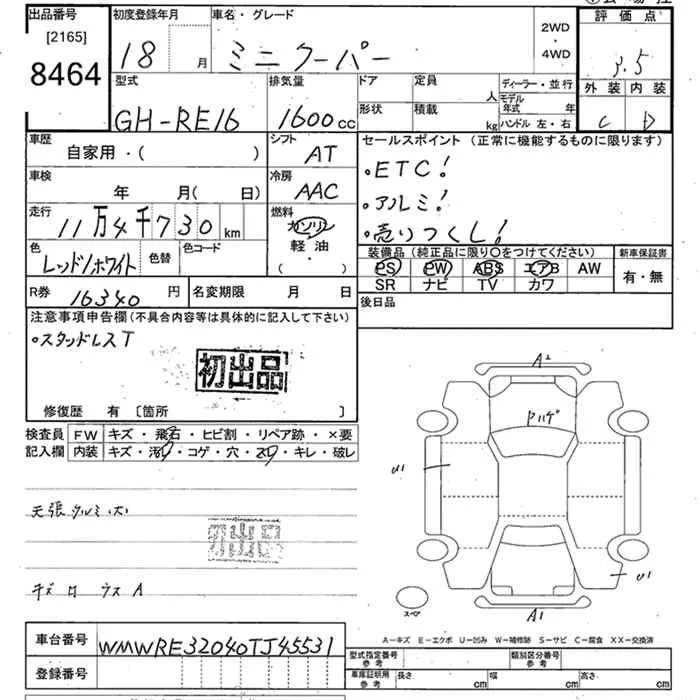 出品番号
[2165]
8464
初度登録年月
18 月
車名・グレード
ミニクーパー
2WD
・
4WD
評価点
3.5
外装 内装
C D
型式
GH-RE16
排気量
1600 cc
ドア
形状
定員
人
積載
kg
ディーラー・並行
モデル年式 年
ハンドル 左・右
車歴
自家用・( )
シフト
AT
車検
年 月( 日)
冷房
AAC
走行
11万4千730 km
燃料
ガソリン
軽油
・
( )
色
レッド/ホワイト
色替
色コード
R券
16340 円
名変期限 月 日
セールスポイント (正常に機能するものに限ります)
・ETC!
・アルミ!
・売りつくし!
装備品 (純正品に限り○をつけてください)
PS PW ABS エアB AW
SR ナビ TV カワ
新車保証書
有・無
後日品
注意事項申告欄(不具合内容等は具体的に記入して下さい)
・スタッドレスT
初出品
修復歴 有 [箇所 ]
検査員
記入欄
FW キズ・飛石・ヒビ割・リペア跡・×要
内装 キズ・汚れ・コゲ・穴・スレ・キレ・破レ
天張タルミ大
初出品
A2
U1
U1
A1
スペア
A－キズ E－エクボ U－凹み W－補修跡 S－サビ C－腐食 XX－交換済
車台番号
WMWRE32040TJ45531
登録番号
型式指定番号
参考
類別区分番号
参考
車庫証明用
参考
長さ cm
幅 cm
高さ cm